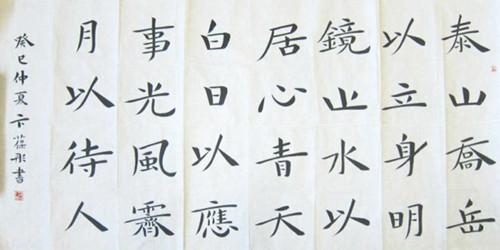 泰山喬岳
以立身明
鏡止水以
居心青天
白日以應
事光風霽
月以待人
癸巳仲夏卞彤書